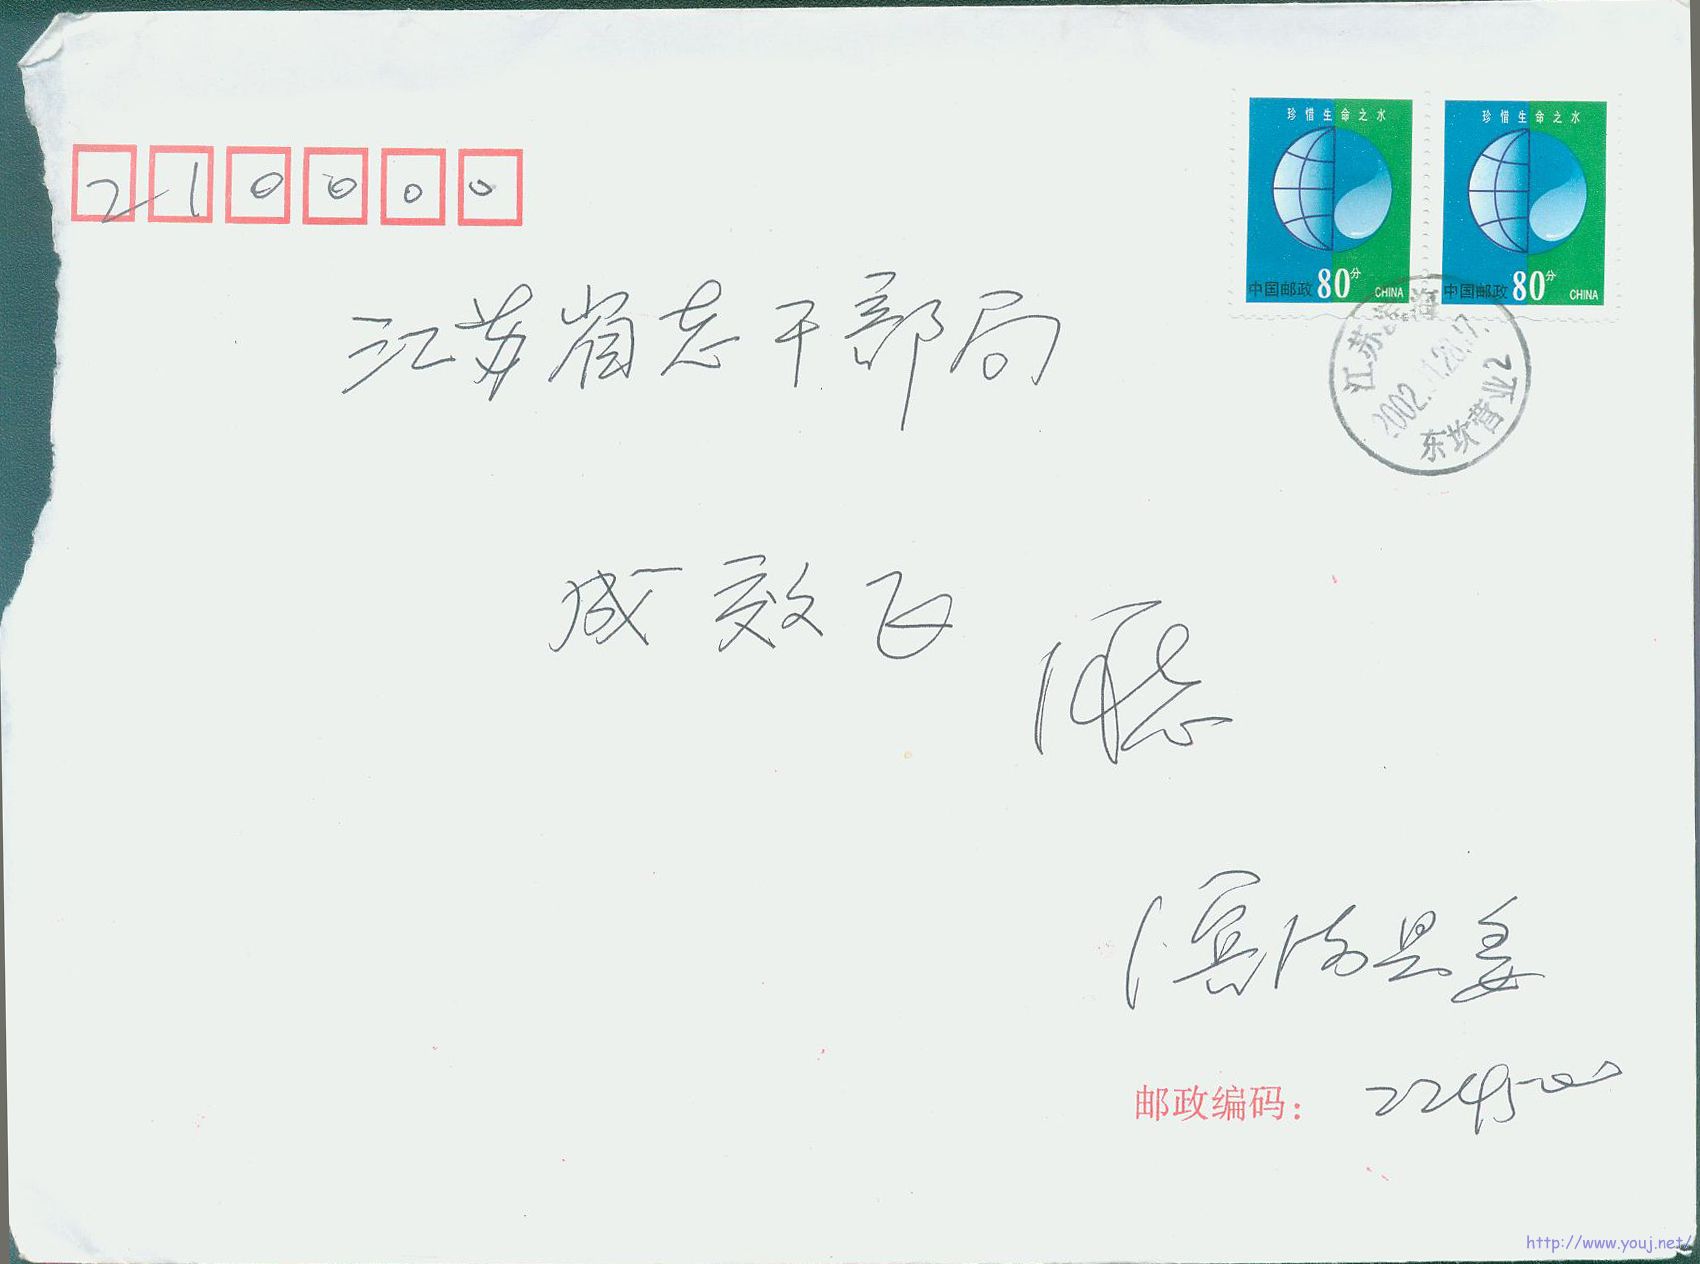 珍惜生命之水
珍惜生命之水
中国邮政 80分 CHINA
中国邮政 80分 CHINA
210000
江苏省志干部局
江苏滨海
2002. 1.28.17.
东坎营业2
成效飞
同志
滨海县委
邮政编码: 224500
http://www.youj.net/